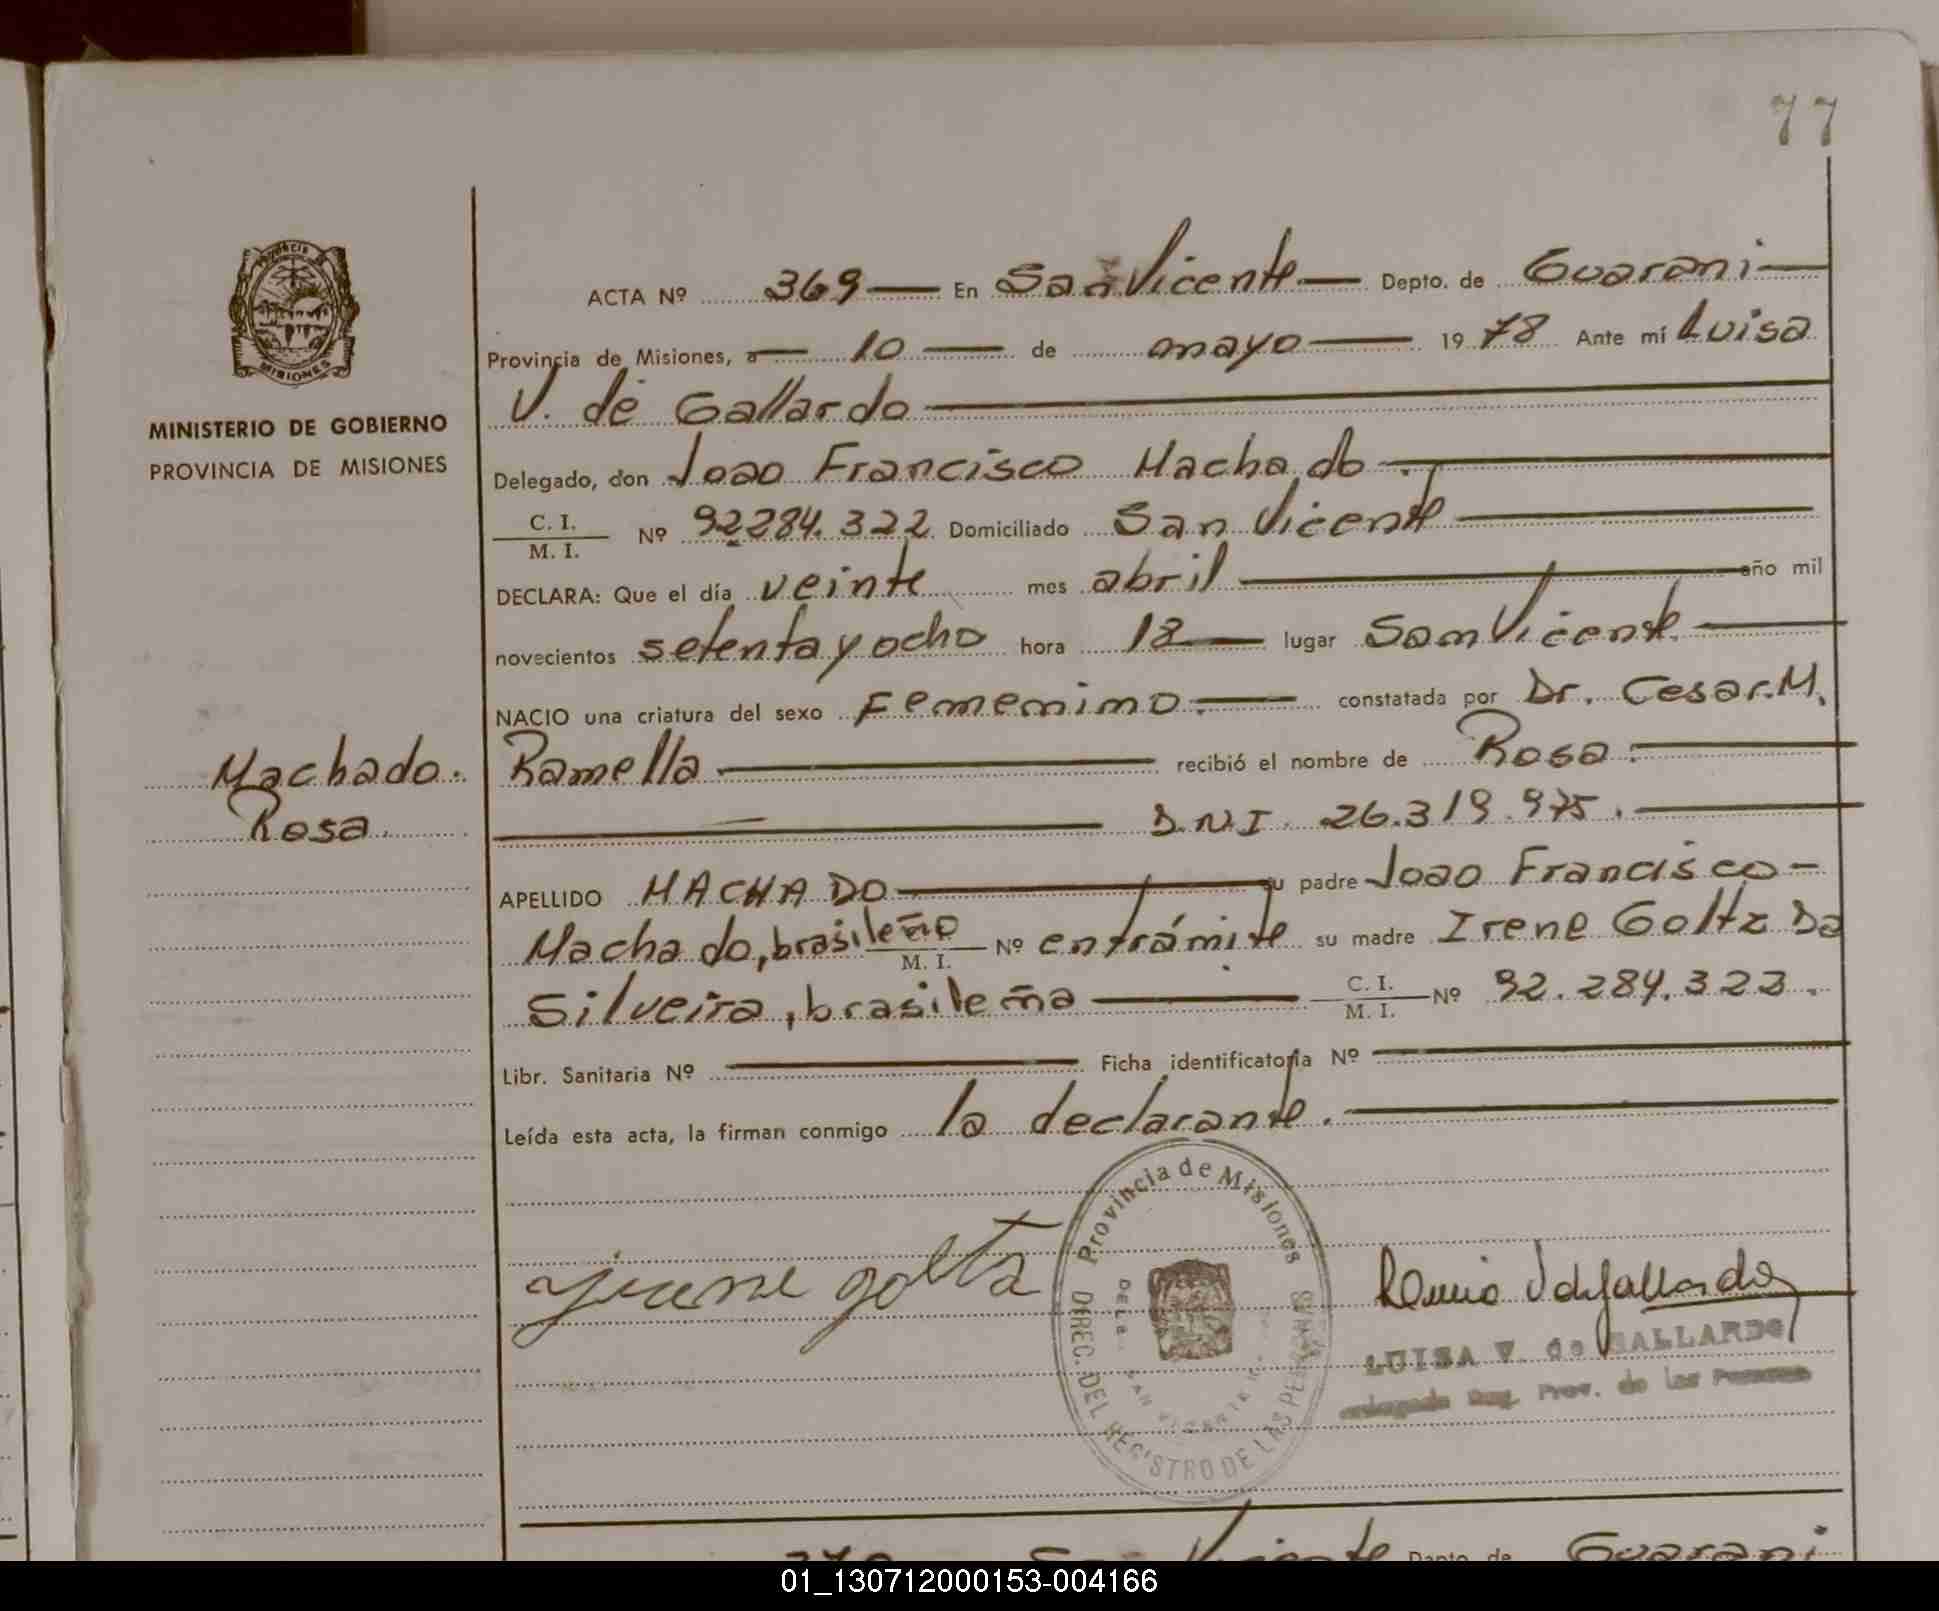 77
Provincia de
MISIONES
MINISTERIO DE GOBIERNO
PROVINCIA DE MISIONES
Machado.
Rosa.
ACTA Nº 369 En San Vicente Depto. de Guarani
Provincia de Misiones, a 10 de mayo 1978 Ante mí Luisa
V. de Gallardo
Delegado, don Joao Francisco Machado.
C. I.
M. I. Nº 92284.322 Domiciliado San Vicente
DECLARA: Que el día veinte mes abril año mil
novecientos setenta y ocho hora 18 lugar San Vicente.
NACIO una criatura del sexo Femenino. constatada por Dr. Cesar. M.
Ramella recibió el nombre de Rosa.
D.N.I. 26.319.975.
APELLIDO MACHADO su padre Joao Francisco
Machado, brasileño M. I. Nº en trámite su madre Irene Goltz Da
Silveira, brasileña C. I.
M. I. Nº 92.284.323.
Libr. Sanitaria Nº Ficha identificatoria Nº
Leída esta acta, la firman conmigo la declarante.
Provincia de Misiones
DIREC. DEL REGISTRO DE LAS PERSONAS
DELE. SAN VICENTE
LUISA V. de GALLARDO
Prov. de las Personas
370 San Vicente Depto. de Guarani
01_130712000153-004166